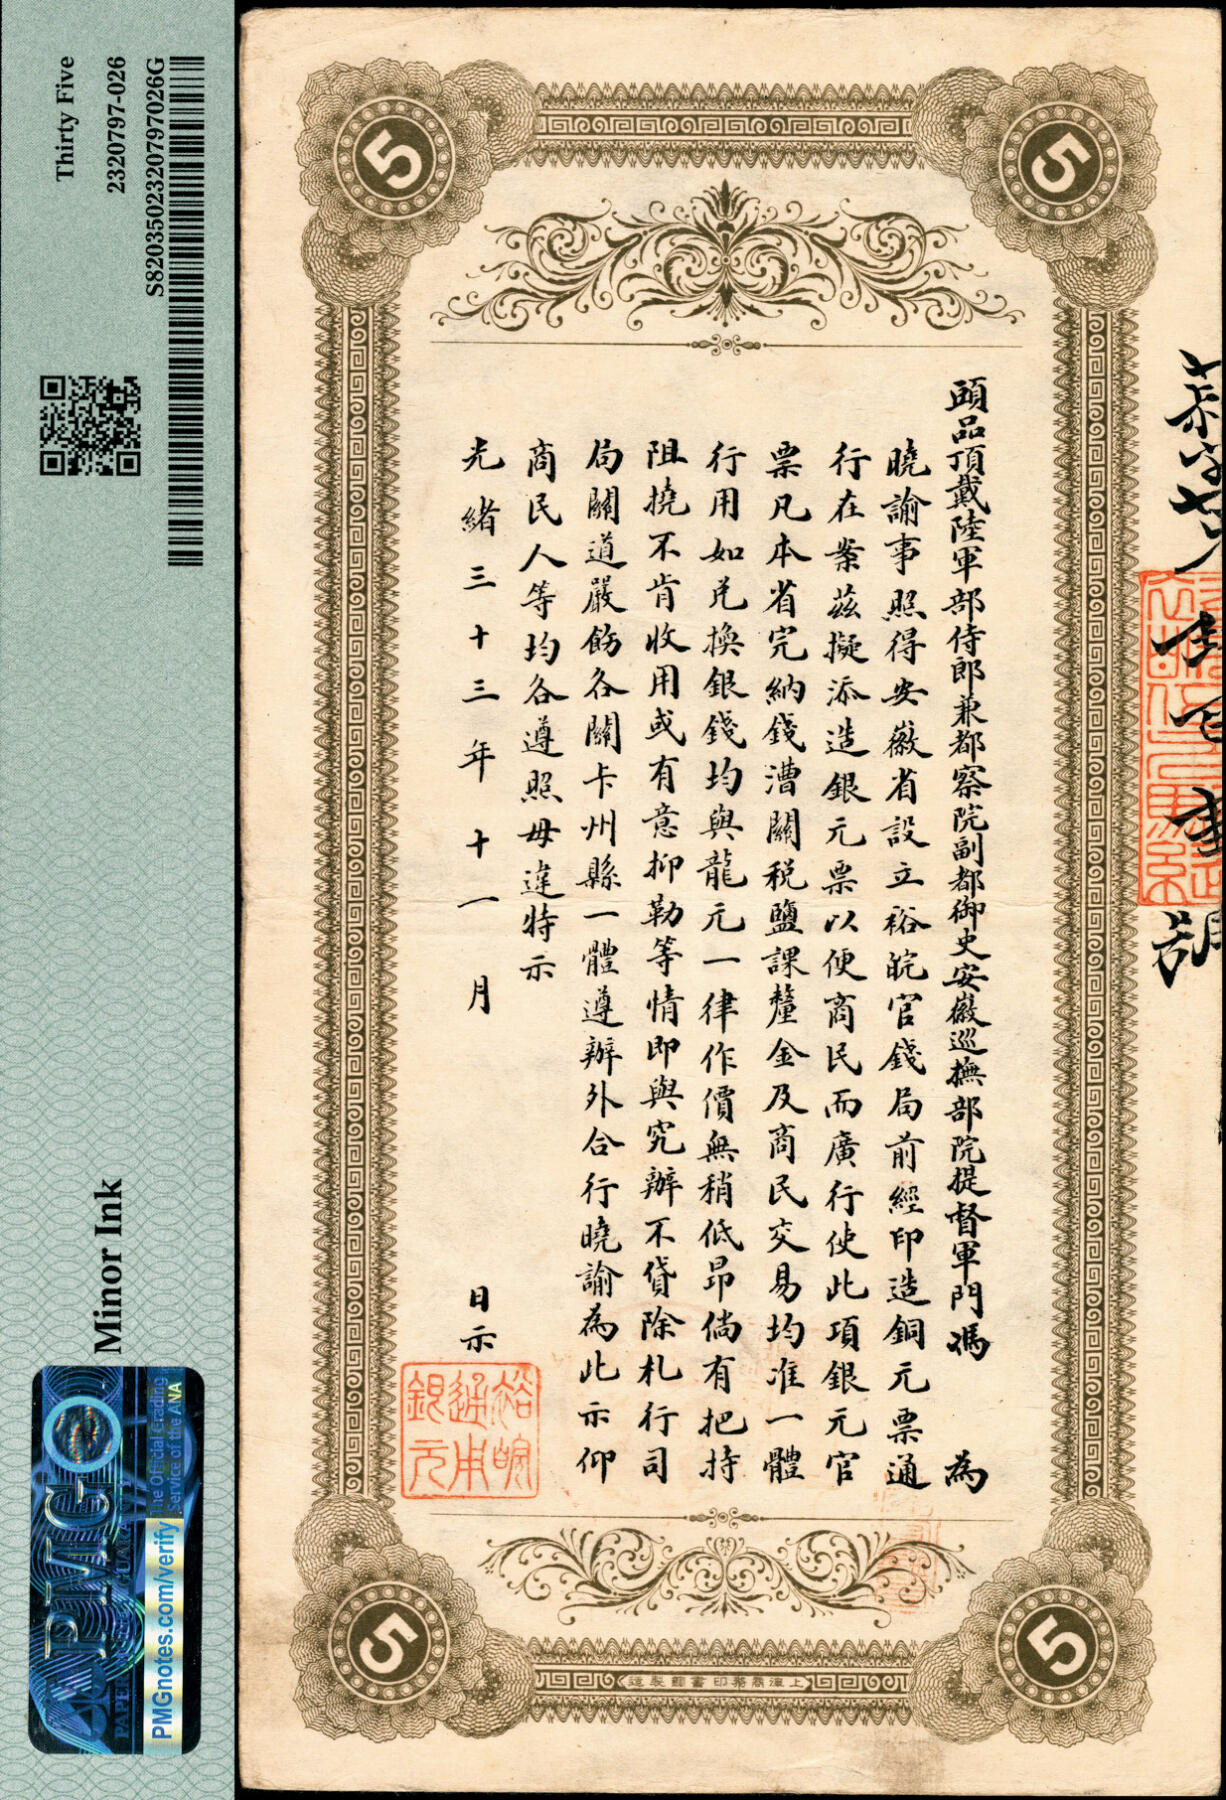 頭品頂戴陸軍部侍郎兼都察院副都御史安徽巡撫部院提督軍門馮 為
曉諭事照得安徽省設立裕皖官錢局前經印造銅元票通
行在案茲擬添造銀元票以便商民而廣行使此項銀元官
票凡本省完納錢漕關稅鹽課釐金及商民交易均准一體
行用如兌換銀錢均與龍元一律作價無稍低昂倘有把持
阻撓不肯收用或有意抑勒等情即與究辦不貸除札行司
局關道嚴飭各關卡州縣一體遵辦外合行曉諭為此示仰
商民人等均各遵照毋違特示
光緒三十三年十一月 日示
裕皖
通用
銀元
5
5
5
5
上海商務印書館製造
Thirty Five
2320797-026
S82035023207970​26G
Minor Ink
PMG
The Official Grading
Service of the ANA
PMGnotes.com/verify